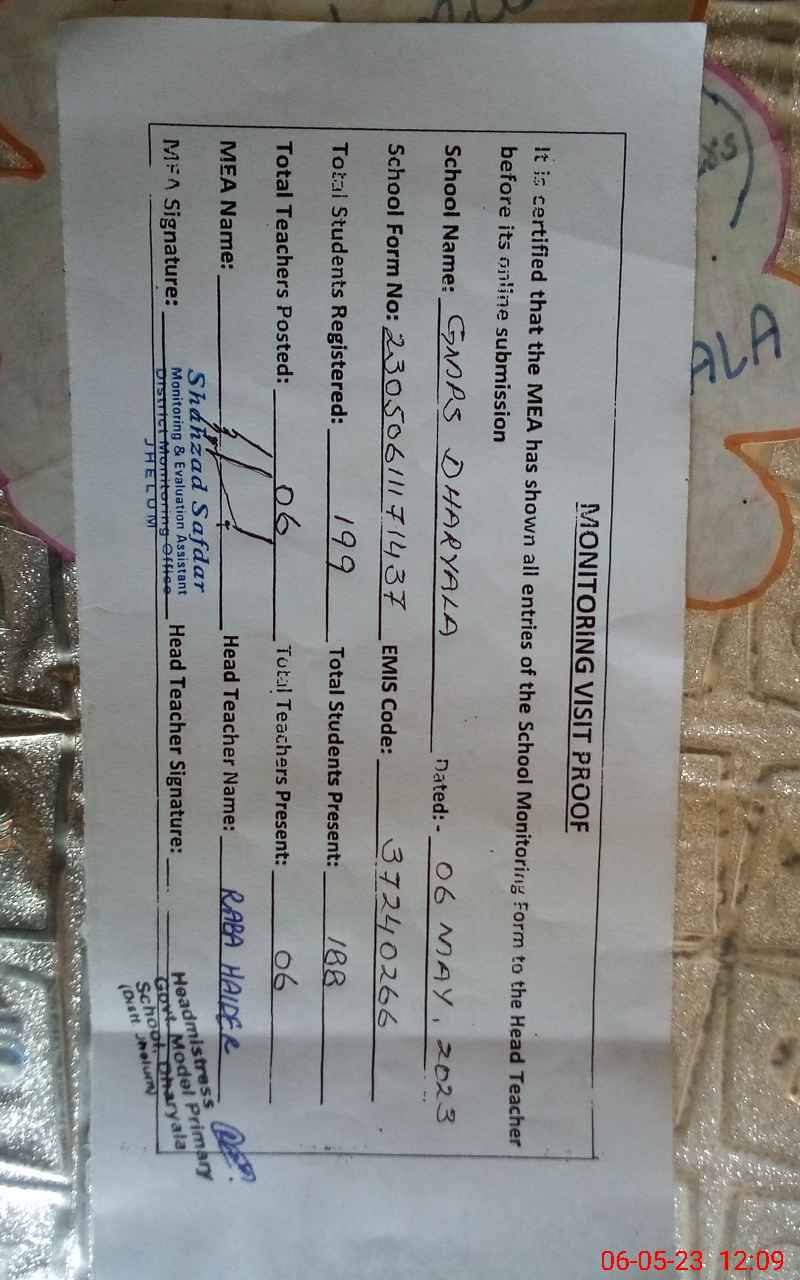 MONITORING VISIT PROOF
It is certified that the MEA has shown all entries of the School Monitoring Form to the Head Teacher
before its online submission
School Name: GMPS DHARYALA Dated:- 06 MAY, 2023
School Form No: 23050611171437 EMIS Code: 37240266
Total Students Registered: 199 Total Students Present: 188
Total Teachers Posted: 06 Total Teachers Present: 06
MEA Name: Head Teacher Name: RABA HAIDER
MEA Signature: Head Teacher Signature:
Shahzad Safdar
Monitoring & Evaluation Assistant
District Monitoring Office
JHELUM
Headmistress
Govt. Model Primary
School Dharyala
(Distt Jhelum)
ALA
06-05-23 12:09